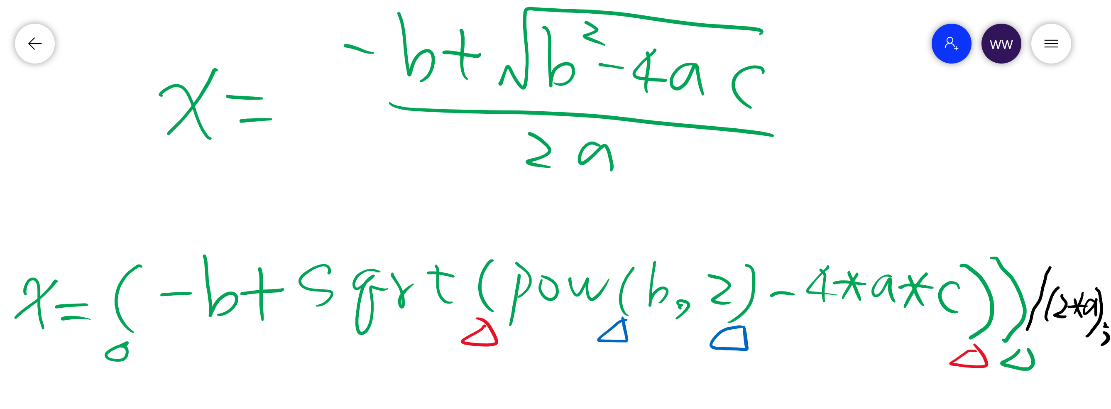 WW
x = (-b + √(b² - 4ac)) / 2a
x = (-b + sqrt(pow(b, 2) - 4*a*c)) / (2*a);